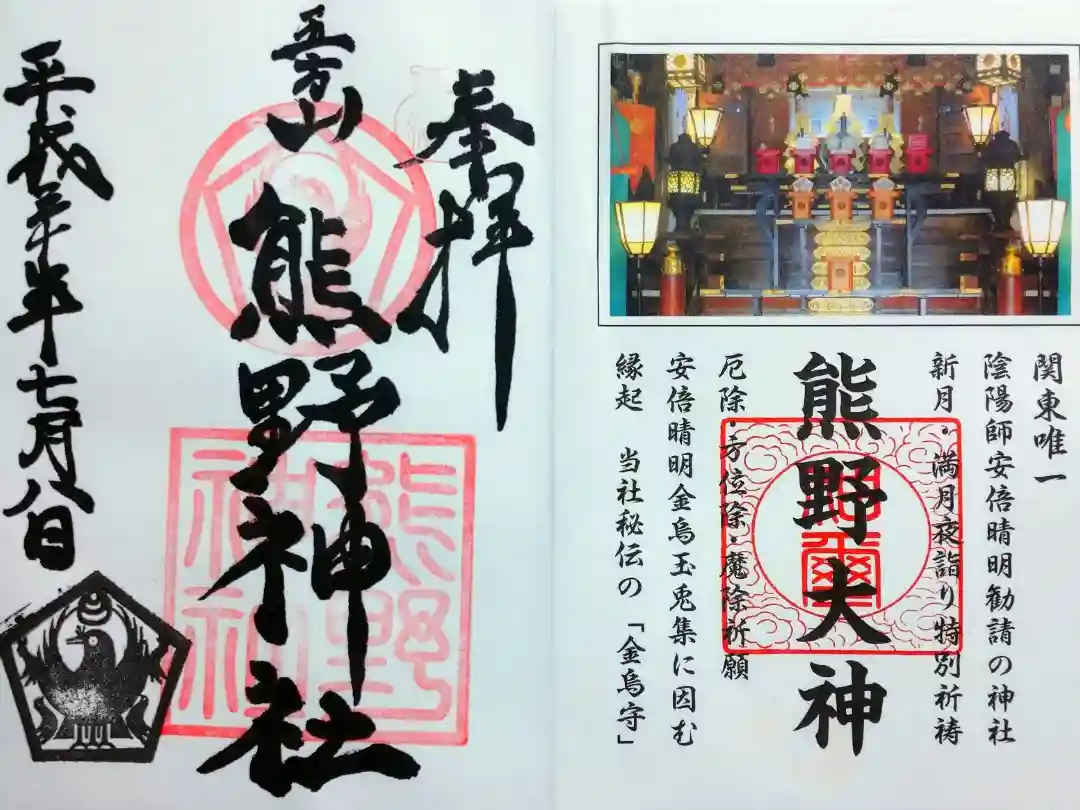 関東唯一
陰陽師安倍晴明勧請の神社
新月・満月夜詣り特別祈祷
熊野大神
厄除・方位除・魔除祈願
安倍晴明金烏玉兎集に因む
縁起 当社秘伝の「金烏守」
奉拝
五方山
熊野神社
熊野
神社
平成三十年七月八日